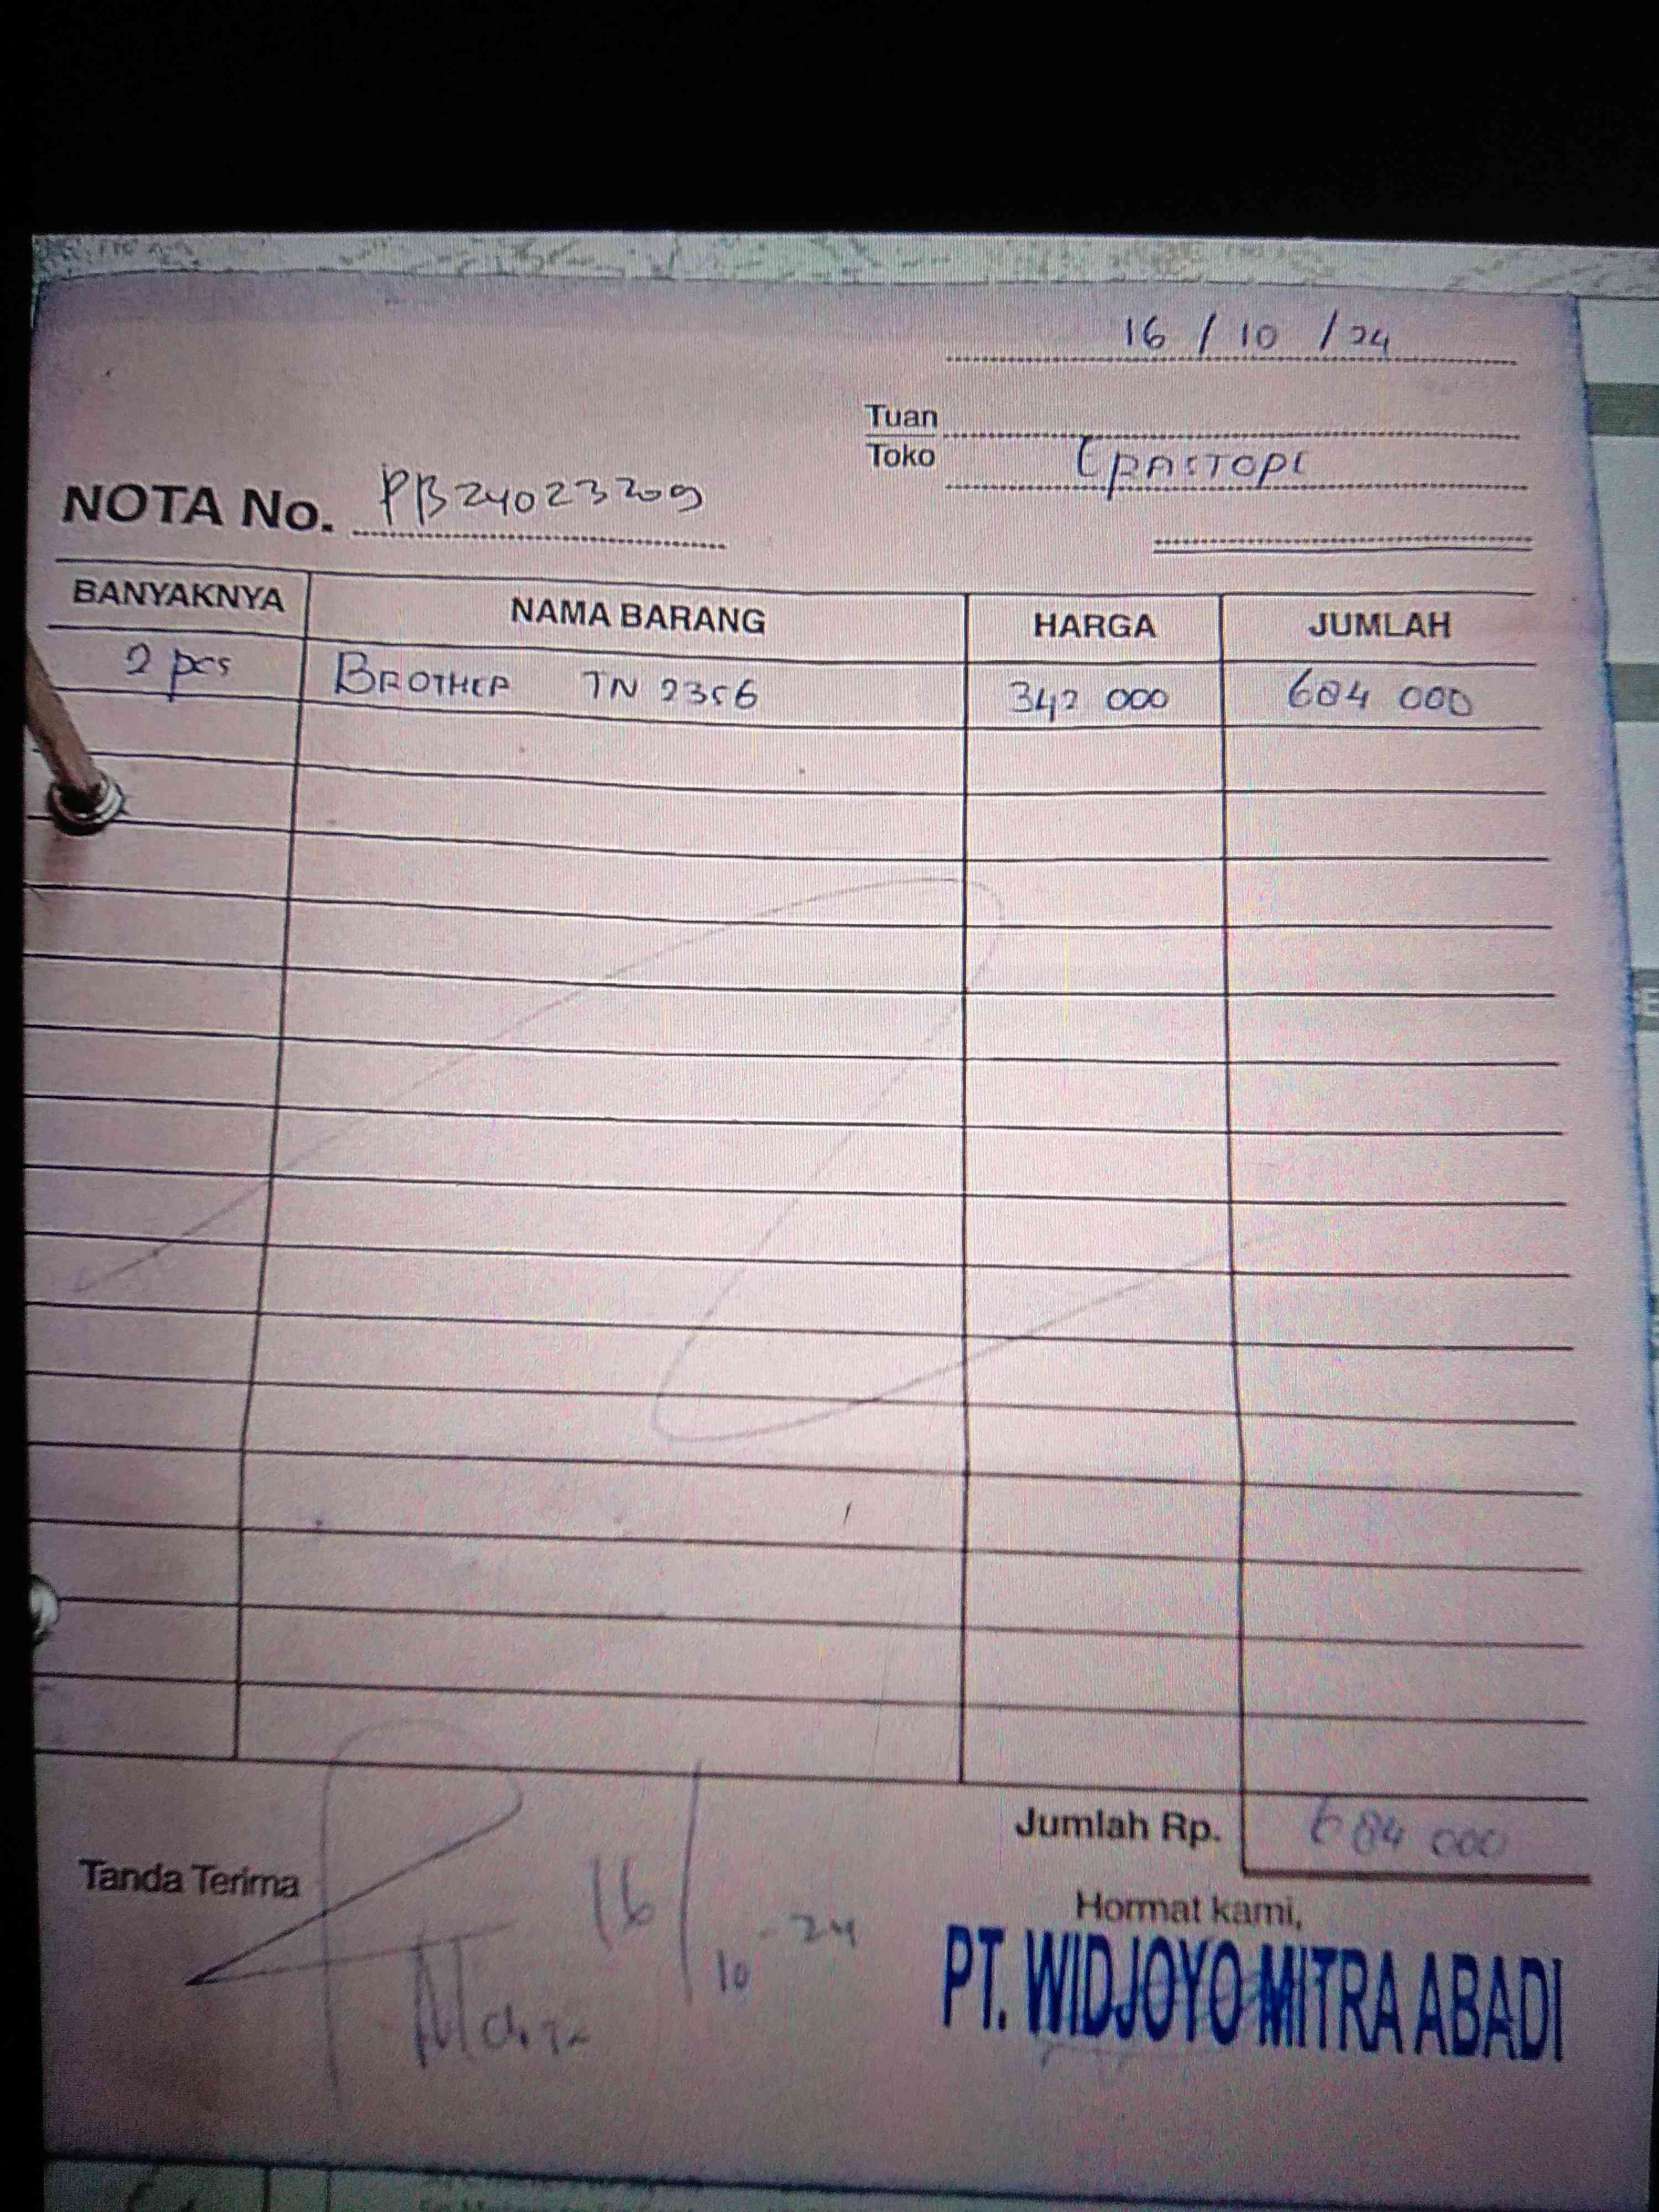 16 / 10 / 24
Tuan
Toko ERASTORE
NOTA No. PB24023209
BANYAKNYA NAMA BARANG HARGA JUMLAH
2 pcs BROTHER TN 2356 342 000 684 000
Jumlah Rp. 684 000
Tanda Terima
16/10-24
Hormat kami,
PT. WIDJOYO MITRA ABADI